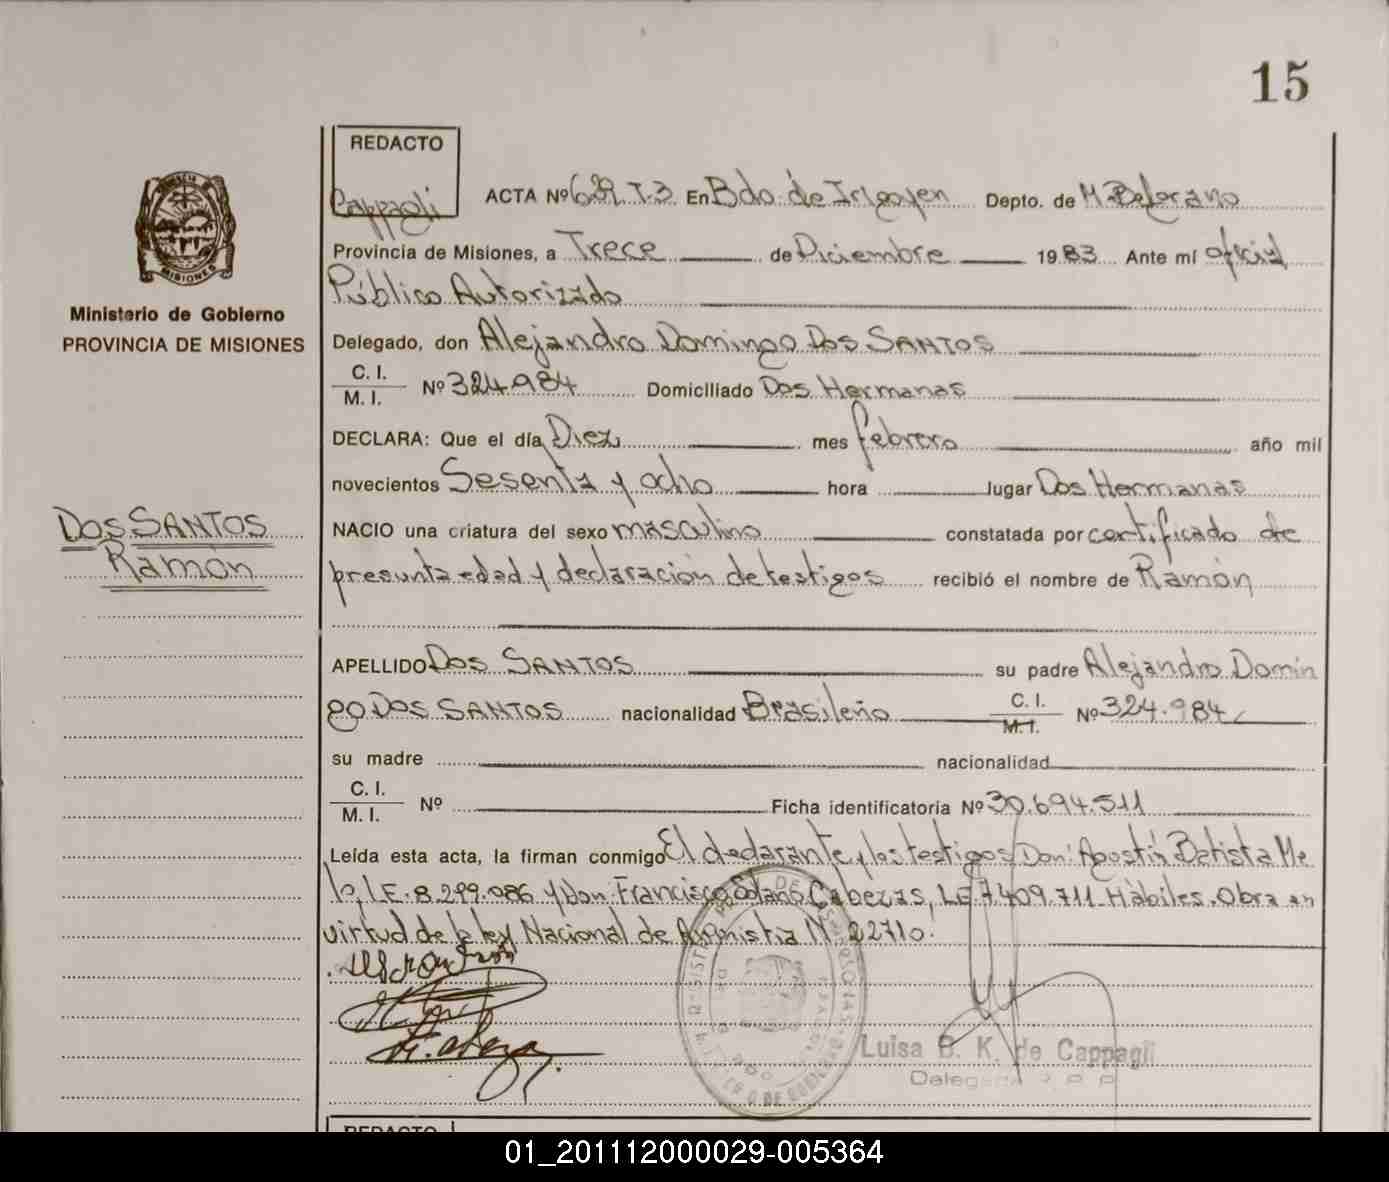 15
REDACTO
Cappagli
ACTA Nº 689. T-3. En Bdo. de Irigoyen Depto. de M. Belgrano
Provincia de Misiones, a Trece de Diciembre 19.83 Ante mí oficial
Público Autorizado
Delegado, don Alejandro Domingo Dos SANTOS
C. I.
M. I. Nº 324.984 Domiciliado Dos Hermanas
DECLARA: Que el día Diez mes febrero año mil
novecientos Sesenta y ocho hora lugar Dos Hermanas
NACIO una criatura del sexo masculino constatada por certificado de
presunta edad y declaración de testigos recibió el nombre de Ramón
APELLIDO Dos SANTOS su padre Alejandro Domin
go Dos SANTOS nacionalidad Brasileño C. I. M. I. Nº 324.984
su madre nacionalidad
C. I.
M. I. Nº Ficha identificatoria Nº 30.694.511
Leída esta acta, la firman conmigo El declarante y los testigos Don: Agostín Batista Me
lo, L.E. 8.299.086 y Don: Francisco Solano Cabezas, L.E. 7.409.711. Hábiles. Obra en
virtud de la ley Nacional de Amnistia Nº 22710.
Luisa B. K. de Cappagli
Delegada R P P
Ministerio de Gobierno
PROVINCIA DE MISIONES
MISIONES
Dos SANTOS
Ramón
REDACTO
01_201112000029-005364